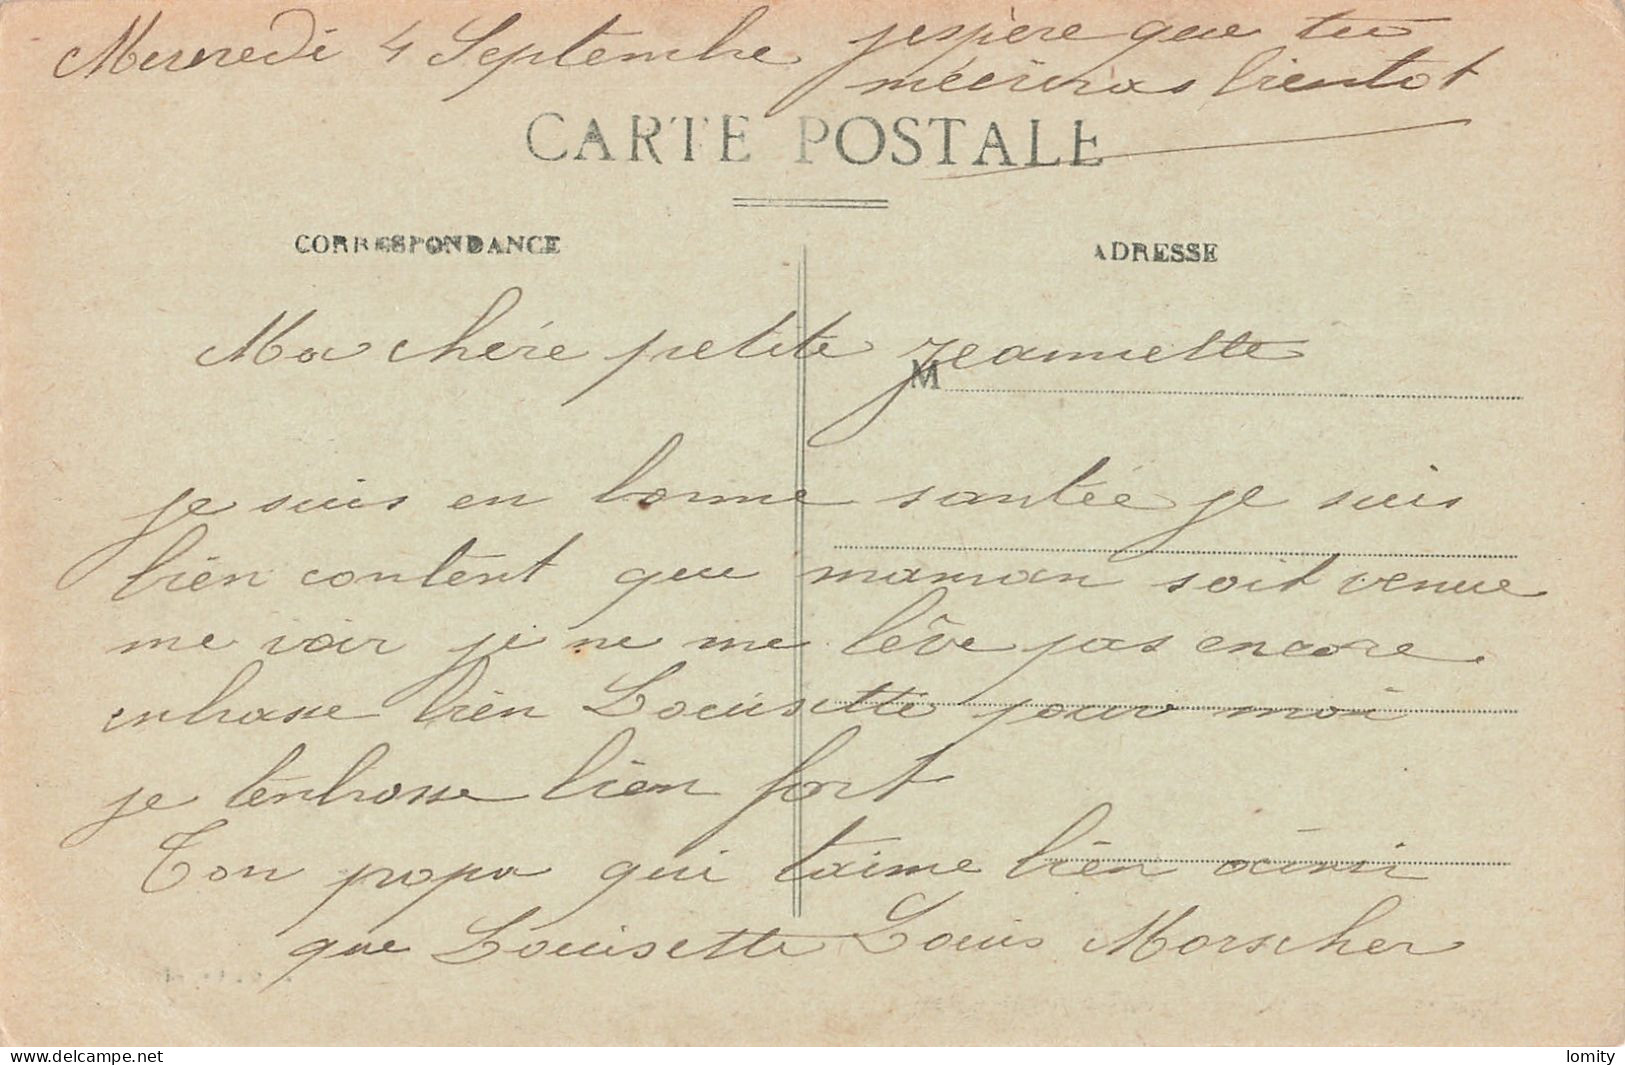 Mercredi 4 Septembre
jespère que tu
mécriras bientot
CARTE POSTALE
CORRESPONDANCE
ADRESSE
Ma chére petite Jeannette
M
je suis en bonne santée je suis
bien content que maman soit venue
me voir je ne me lêve pas encore.
enbrasse bien Louisette pour moi
je tenbrasse bien fort
Ton papa qui taime bien ainsi
que Louisette Louis Morscher
www.delcampe.net
lomity